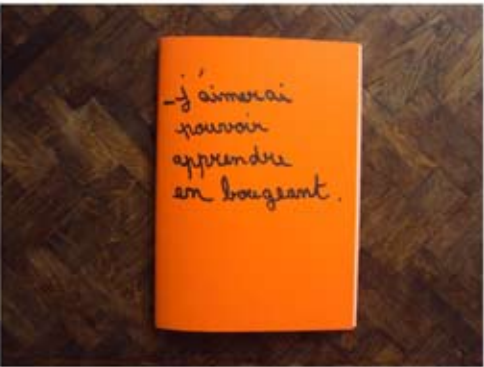 _j'aimerai
pouvoir
apprendre
en bougeant.